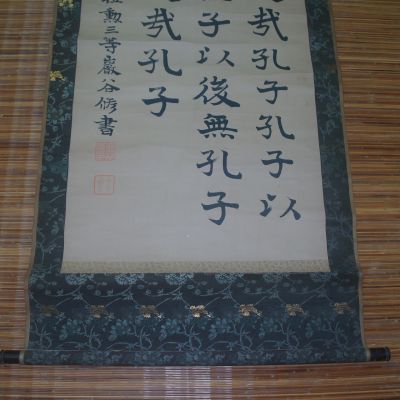 哉孔子孔子以
子以後無孔子
哉孔子
位勲三等巖谷修書